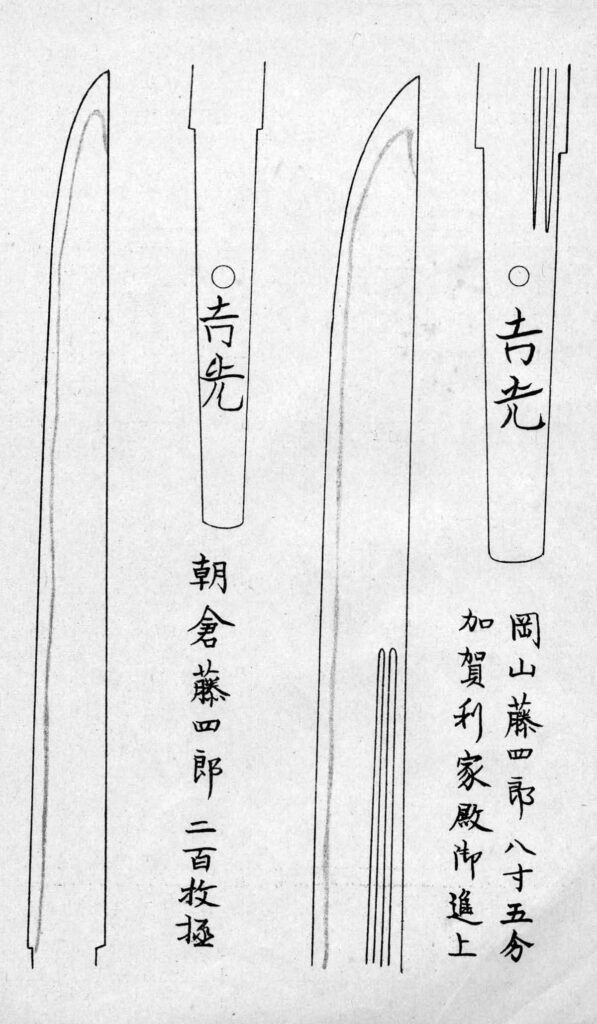 吉光
岡山藤四郎 八寸五分
加賀利家殿御進上
吉光
朝倉藤四郎 二百枚極